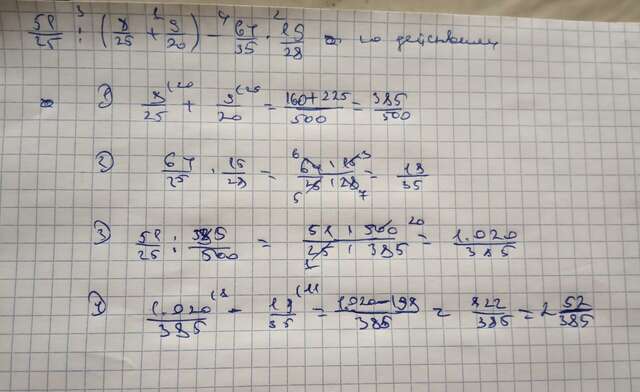 51/25 : (8/25 + 9/20) - 64/35 · 15/28 по действиям
1) 8/25 + 9/20 = 160+225/500 = 385/500
2) 64/25 · 15/28 = 64 · 15/25 · 28 = 18/35
3) 51/25 : 385/500 = 51 · 500/25 · 385 = 1.020/385
4) 1.020/385 - 18/35 = 1.020-198/385 = 822/385 = 2 52/385